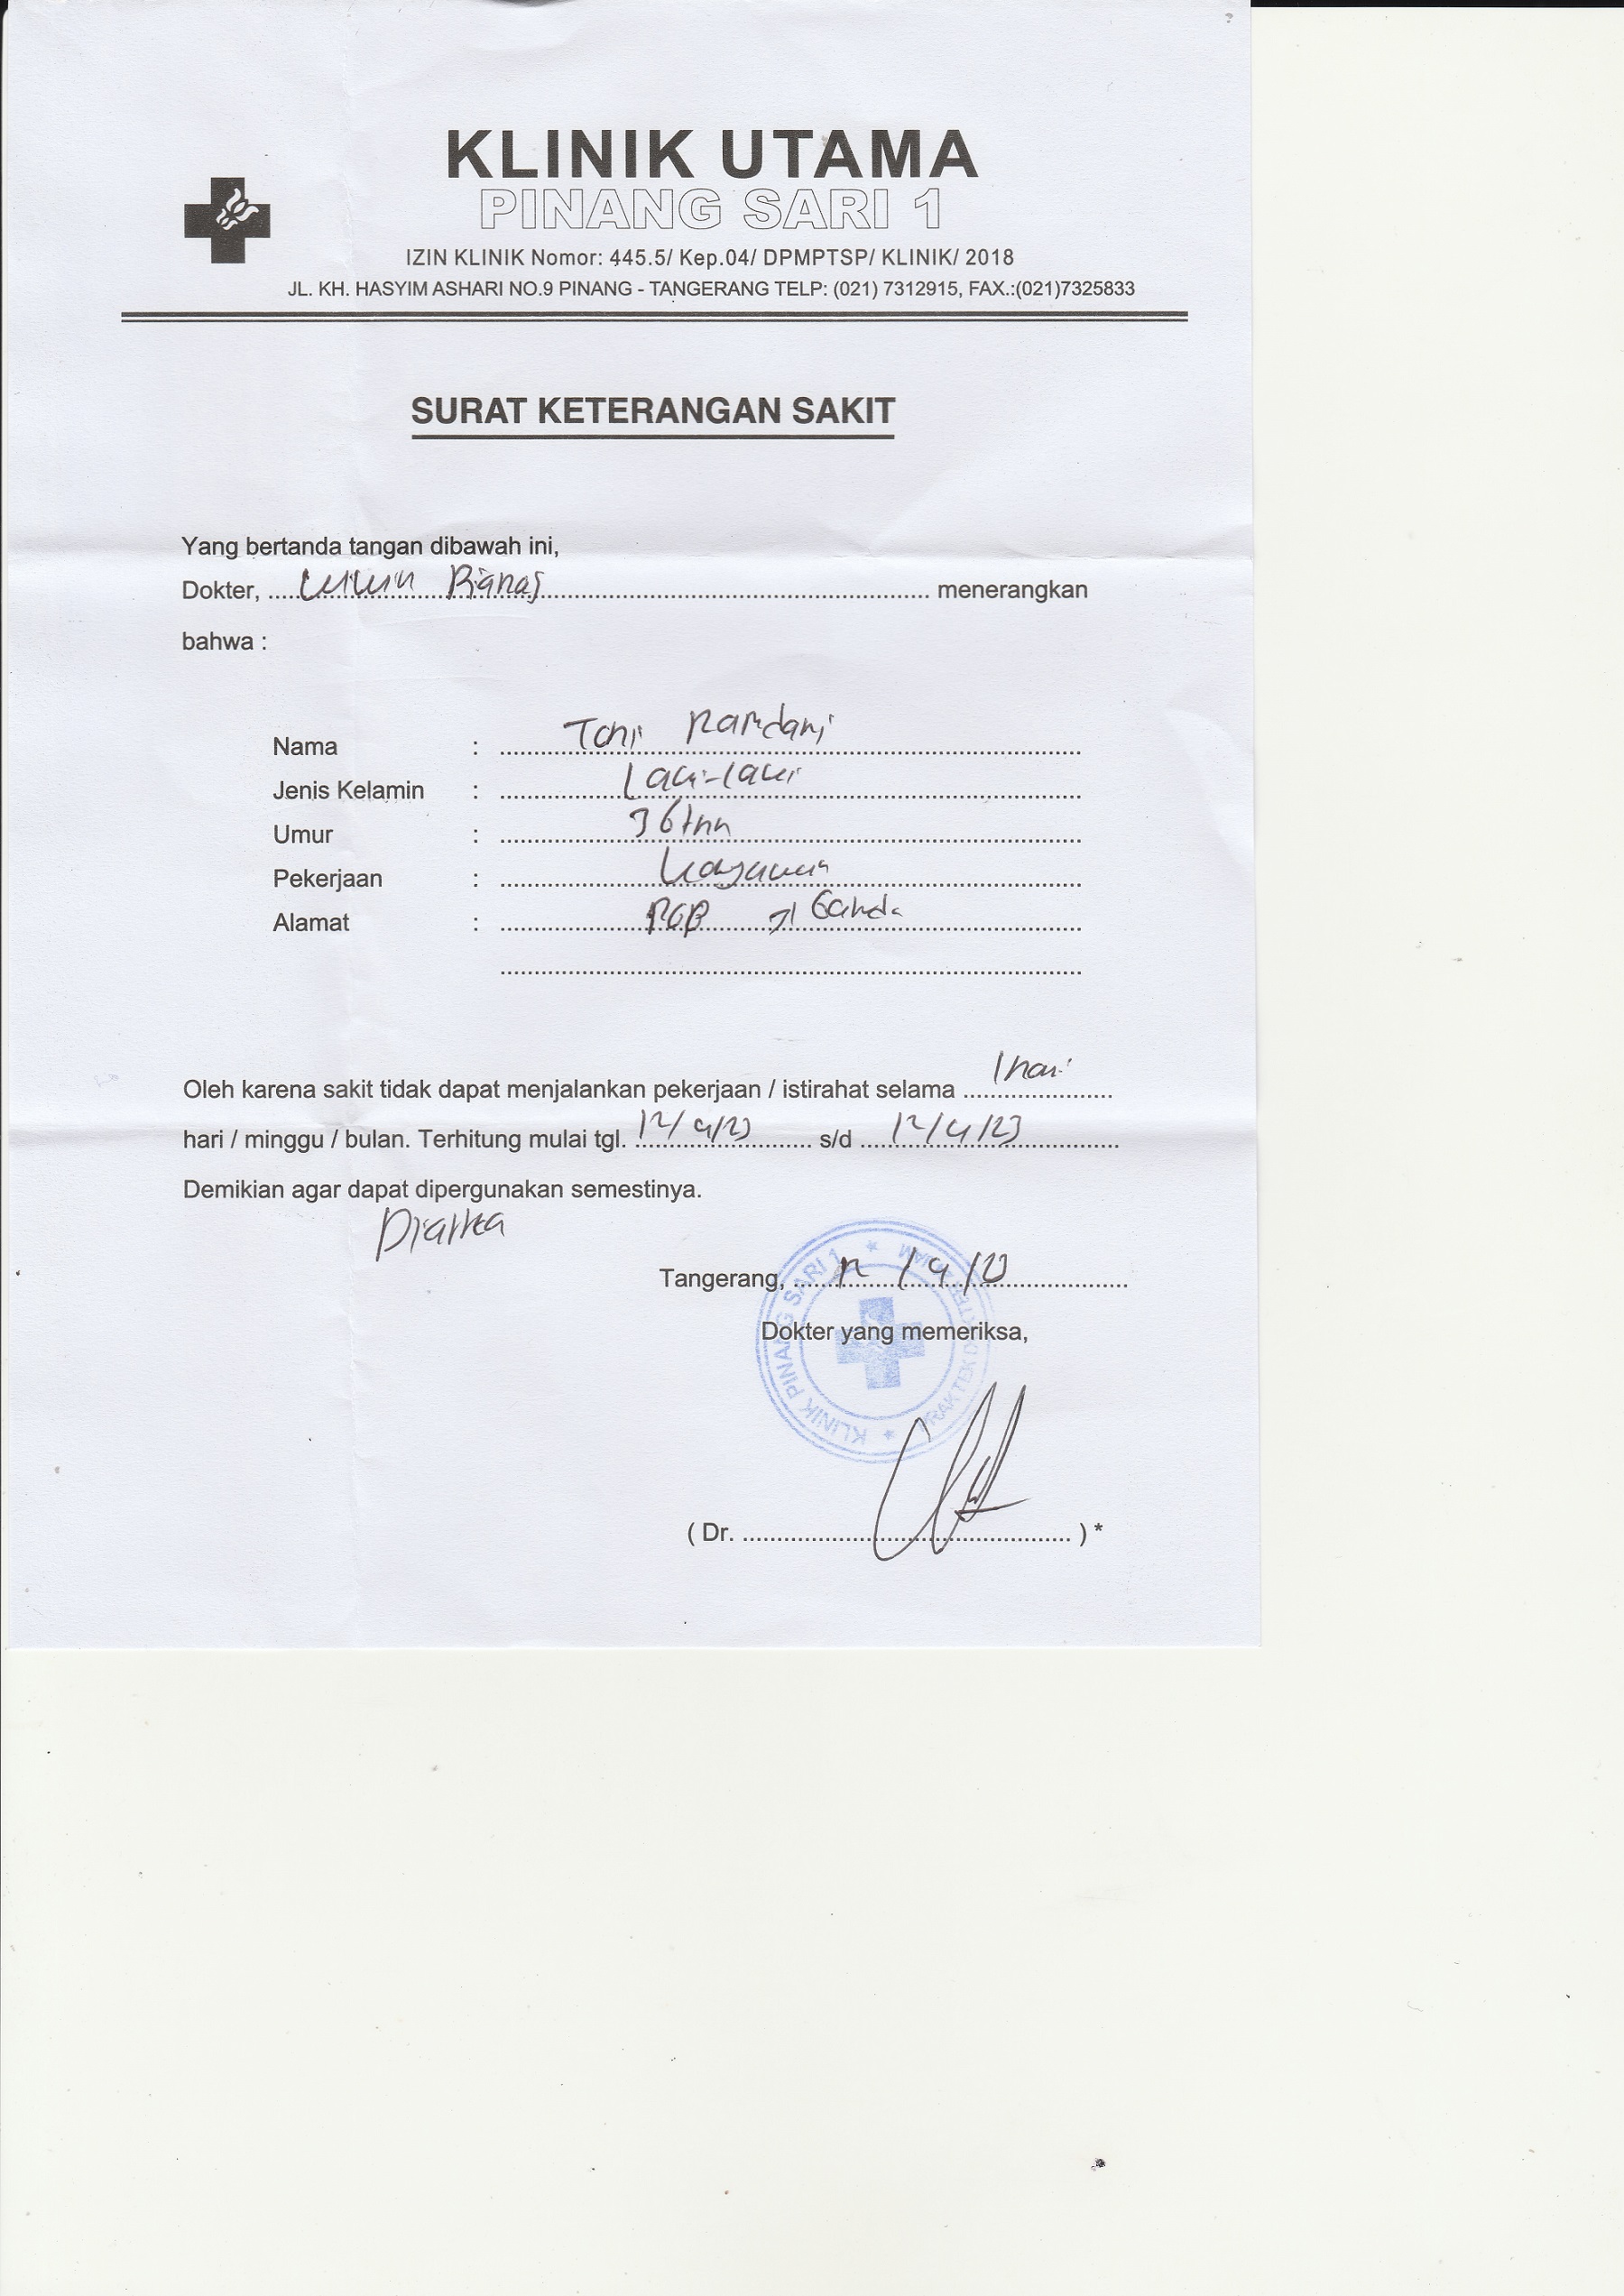 KLINIK UTAMA
PINANG SARI 1
IZIN KLINIK Nomor: 445.5/ Kep.04/ DPMPTSP/ KLINIK/ 2018
JL. KH. HASYIM ASHARI NO.9 PINANG - TANGERANG TELP: (021) 7312915, FAX.:(021)7325833
SURAT KETERANGAN SAKIT
Yang bertanda tangan dibawah ini,
Dokter, menerangkan
bahwa :
Nama : Toni Ramdani
Jenis Kelamin : Laki-laki
Umur : 36 thn
Pekerjaan : Karyawan
Alamat : PGB Jl Ganda
Oleh karena sakit tidak dapat menjalankan pekerjaan / istirahat selama 1 hari
hari / minggu / bulan. Terhitung mulai tgl. 12/4/23 s/d 12/4/23
Demikian agar dapat dipergunakan semestinya.
Tangerang, 12/4/23
Dokter yang memeriksa,
KLINIK PINANG SARI 1
( Dr. ) *